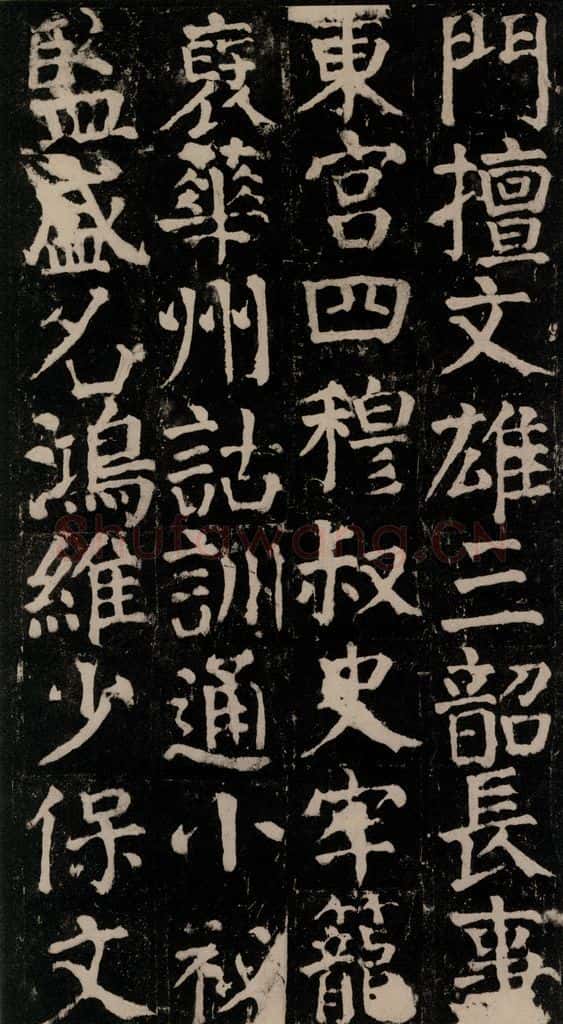 門擅文雄三韶長事
東宮四穆叔史牢籠
裒華州詁訓通小祕
監盛名鴻維少保文
Shufawang.CN